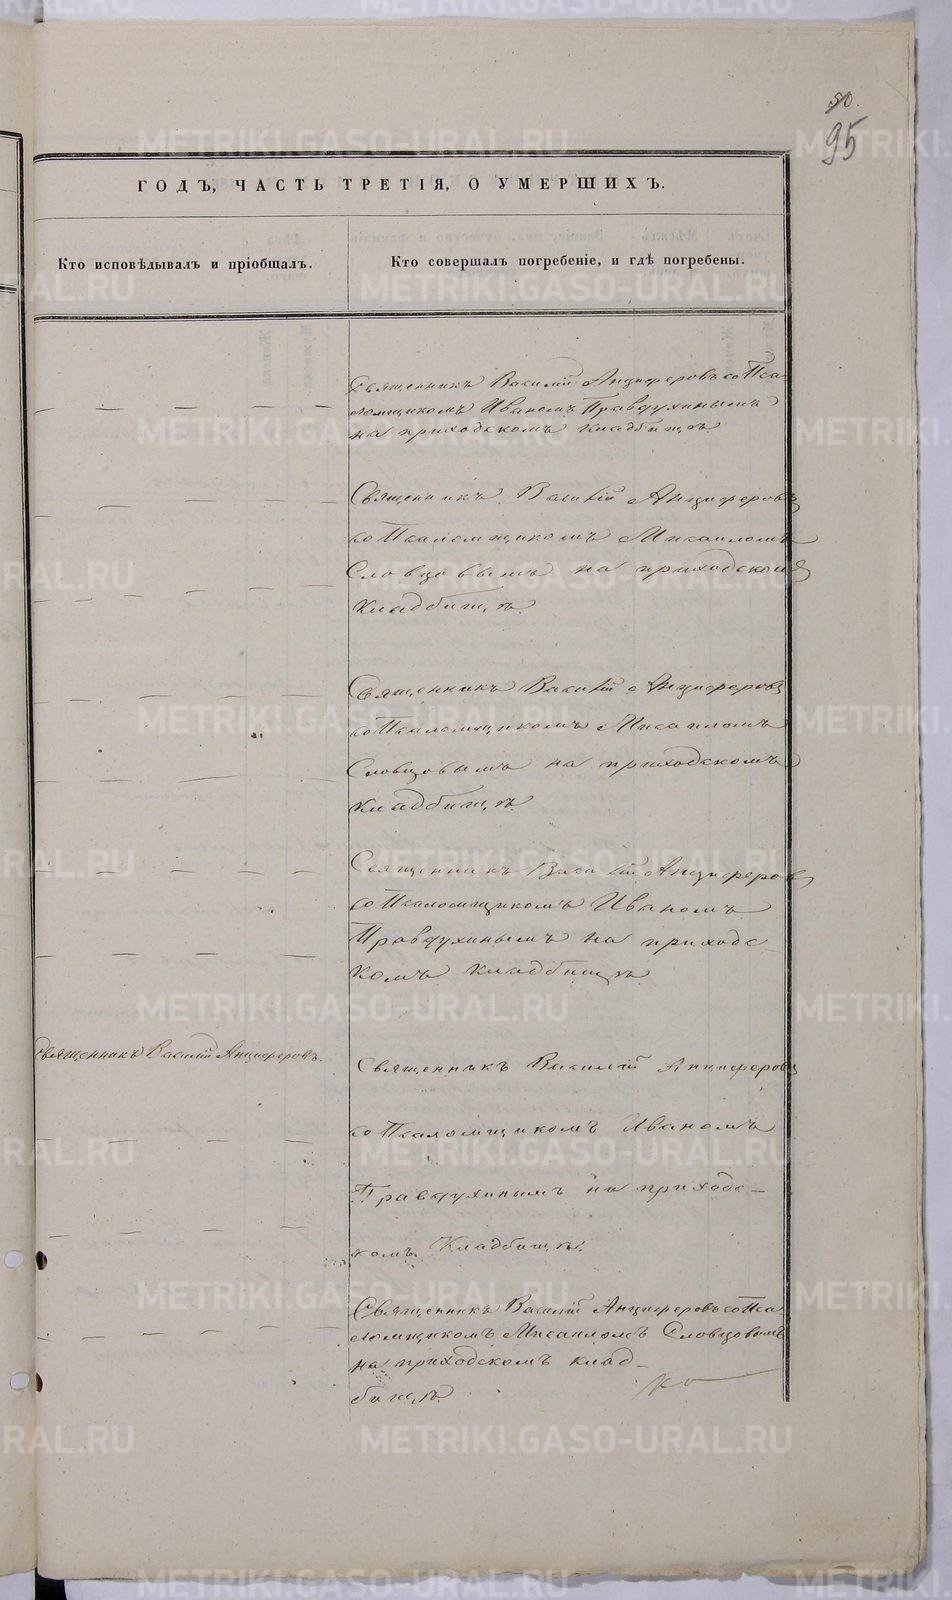 50.
95
ГОДЪ, ЧАСТЬ ТРЕТІЯ, О УМЕРШИХЪ.
Кто исповѣдывалъ и пріобщалъ.
Кто совершалъ погребеніе, и гдѣ погребены.
Священникъ Василій Анциферовъ со Пса
ломщикомъ Иваномъ Правдухинымъ
на приходскомъ кладбищѣ.
Священникъ Василій Анциферовъ
со Псаломщикомъ Мисаиломъ
Словцовымъ на приходскомъ
кладбищѣ.
Священникъ Василій Анциферовъ
со Псаломщикомъ Мисаиломъ
Словцовымъ на приходскомъ
кладбищѣ
Священникъ Василій Анциферовъ
со Псаломщикомъ Иваномъ
Правдухинымъ на приходс-
комъ кладбищѣ
Священникъ Василій Анциферовъ.
Священникъ Василій Анциферовъ
со Псаломщикомъ Иваномъ
Правдухинымъ на приходс-
комъ Кладбищѣ.
Священникъ Василій Анциферовъ со Пса
ломщикомъ Мисаиломъ Словцовымъ
на приходскомъ клад-
бищѣ.
METRIKI.GASO-URAL.RU